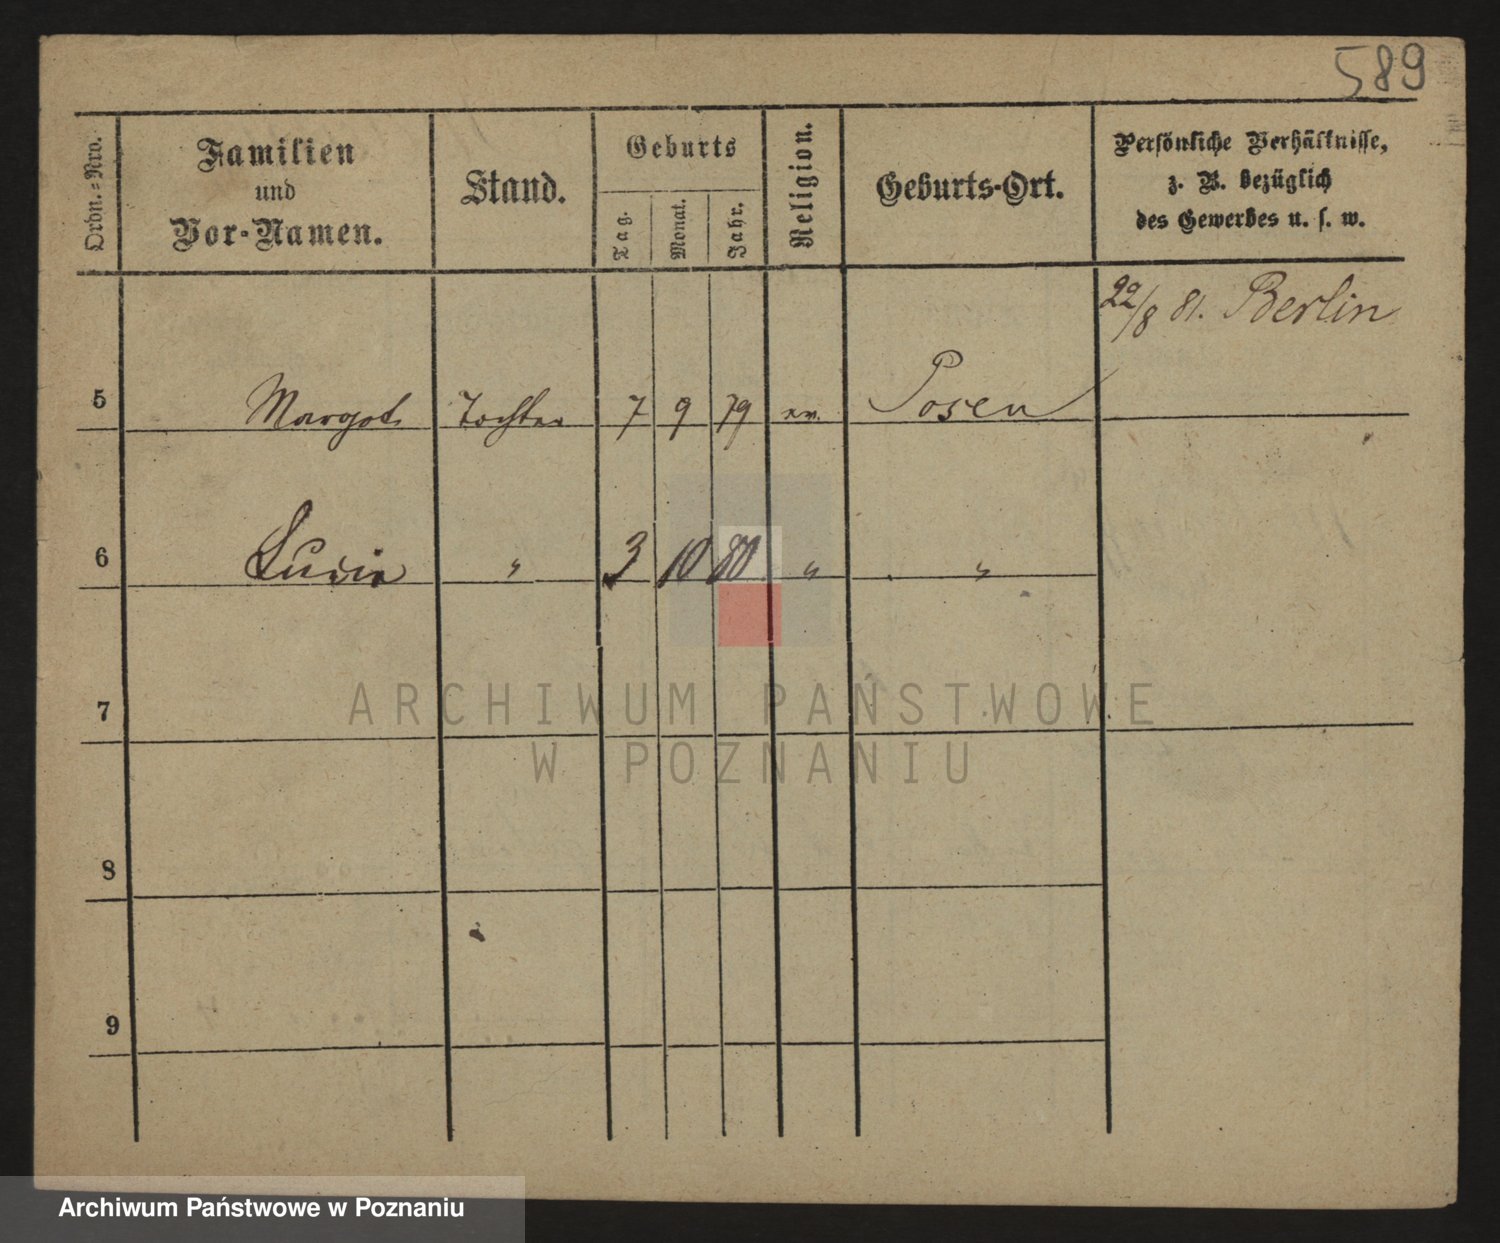 589
Ordn.-Nro.
Familien
und
Vor-Namen.
Stand.
Geburts
Tag.
Monat.
Jahr.
Religion.
Geburts-Ort.
Persönliche Verhältnisse,
z. B. bezüglich
des Gewerbes u. s. w.
22/8 81. Berlin
5 Margot Tochter 7 9 79 ev. Posen
6 Lucie " 3 10 80 " "
7
ARCHIWUM PAŃSTWOWE
W POZNANIU
8
9
Archiwum Państwowe w Poznaniu